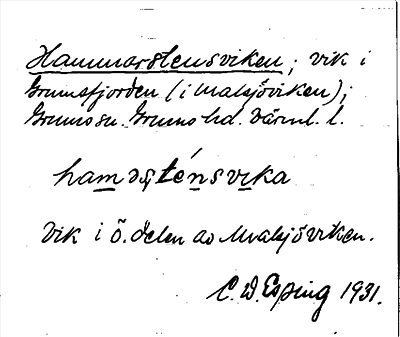 Hammarstensviken; vik i
Grumsfjorden (i Malsjöviken);
Grums sn. Grums hd. Värml. l.
hamarsténsvika
Vik i ö. delen av Malsjöviken.
C. W. Esping 1931.